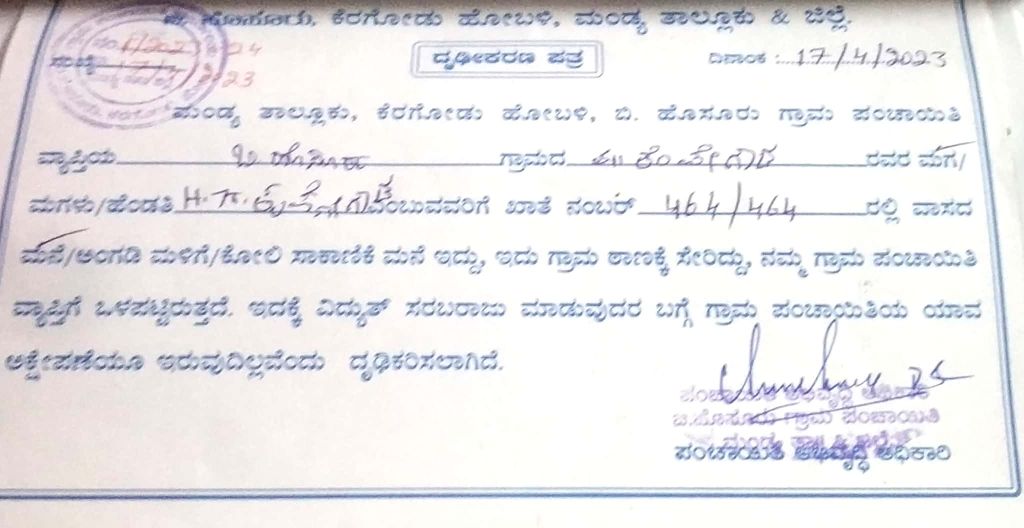 ಬಿ. ಹೊಸೂರು, ಕೆರಗೋಡು ಹೋಬಳಿ, ಮಂಡ್ಯ ತಾಲ್ಲೂಕು & ಜಿಲ್ಲೆ.
ದೃಢೀಕರಣ ಪತ್ರ
ಸಂಖ್ಯೆ ದಿನಾಂಕ : 17/4/2023
ಮಂಡ್ಯ ತಾಲ್ಲೂಕು, ಕೆರಗೋಡು ಹೋಬಳಿ, ಬಿ. ಹೊಸೂರು ಗ್ರಾಮ ಪಂಚಾಯಿತಿ
ವ್ಯಾಪ್ತಿಯ ಬಿ ಹೊಸೂರು ಗ್ರಾಮದ ಕೆಂಪೇಗೌಡ ರವರ ಮಗ/
ಮಗಳು/ಹೆಂಡತಿ H.K. ಎಂಬುವವರಿಗೆ ಖಾತೆ ನಂಬರ್ 464/464 ರಲ್ಲಿ ವಾಸದ
ಮನೆ/ಅಂಗಡಿ ಮಳಿಗೆ/ಕೋಲಿ ಸಾಕಾಣಿಕೆ ಮನೆ ಇದ್ದು, ಇದು ಗ್ರಾಮ ಠಾಣಕ್ಕೆ ಸೇರಿದ್ದು, ನಮ್ಮ ಗ್ರಾಮ ಪಂಚಾಯಿತಿ
ವ್ಯಾಪ್ತಿಗೆ ಒಳಪಟ್ಟಿರುತ್ತದೆ. ಇದಕ್ಕೆ ವಿದ್ಯುತ್ ಸರಬರಾಜು ಮಾಡುವುದರ ಬಗ್ಗೆ ಗ್ರಾಮ ಪಂಚಾಯಿತಿಯ ಯಾವ
ಅಕ್ಷೇಪಣೆಯೂ ಇರುವುದಿಲ್ಲವೆಂದು ದೃಢಿಕರಿಸಲಾಗಿದೆ.
ಪಂಚಾಯಿತಿ ಅಭಿವೃದ್ಧಿ ಅಧಿಕಾರಿ
ಬಿ.ಹೊಸೂರು ಗ್ರಾಮ ಪಂಚಾಯಿತಿ
ಮಂಡ್ಯ ತಾ॥ & ಜಿಲ್ಲೆ
ಪಂಚಾಯಿತಿ ಅಭಿವೃದ್ಧಿ ಅಧಿಕಾರಿ